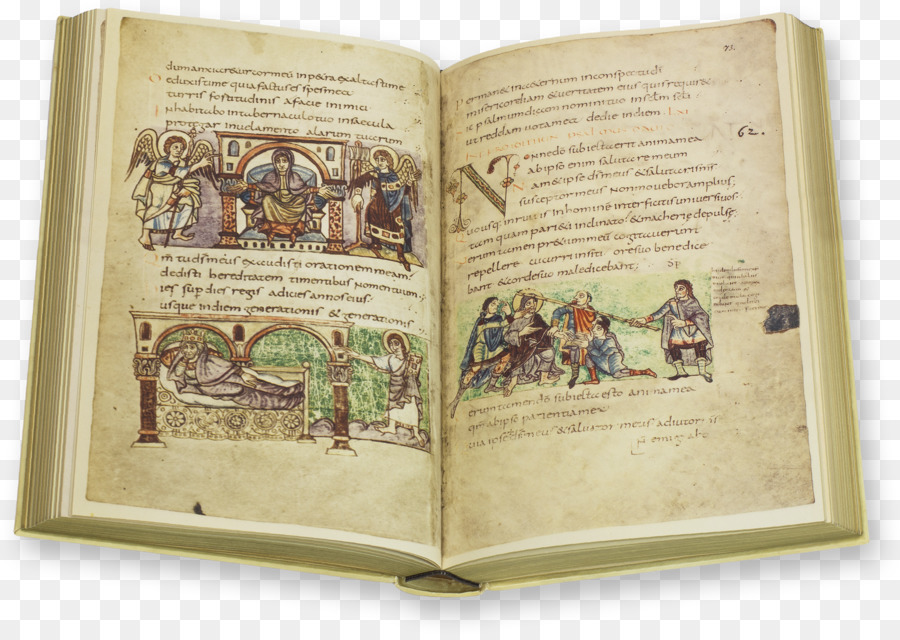 dum anxiaretur cor meū in petra exaltasti me
deduxisti me quia factus es spes mea
turris fortitudinis a facie inimici
Inhabitabo in tabernaculo tuo in saecula
protegar in uelamento alarum tuarum
m tu dsmeus exaudisti orationem meam
dedisti hereditatem timentibus nomen tuum
ies sup dies regis adicies annos eius
usque in diem generationis & generationis
73.
Permanet in aeternum in conspectu dī
misericordiam & ueritatem eius quis requir&
psalmum dicam nomini tuo in sclm scli
ut reddam uota mea de die in diem
62.
Nonne dō subiecta erit anima mea
ab ipso enim salutare meum
nam & ipse dsmeus & salutaris
susceptor meus non mouebor amplius
Quousq; inruitis in homine interficitis uniuersos
tam quam pari&i inclinato & maceriae depulse
erumtamen pr&ium meū cogitauerunt
repellere cucurri in siti ore suo benedice
bant & corde suo maledicebant
erumtamen dō subiecta esto anima mea
qm ab ipso patientia mea
quia ipse dsmeus & saluator meus adiutor
emigrabo